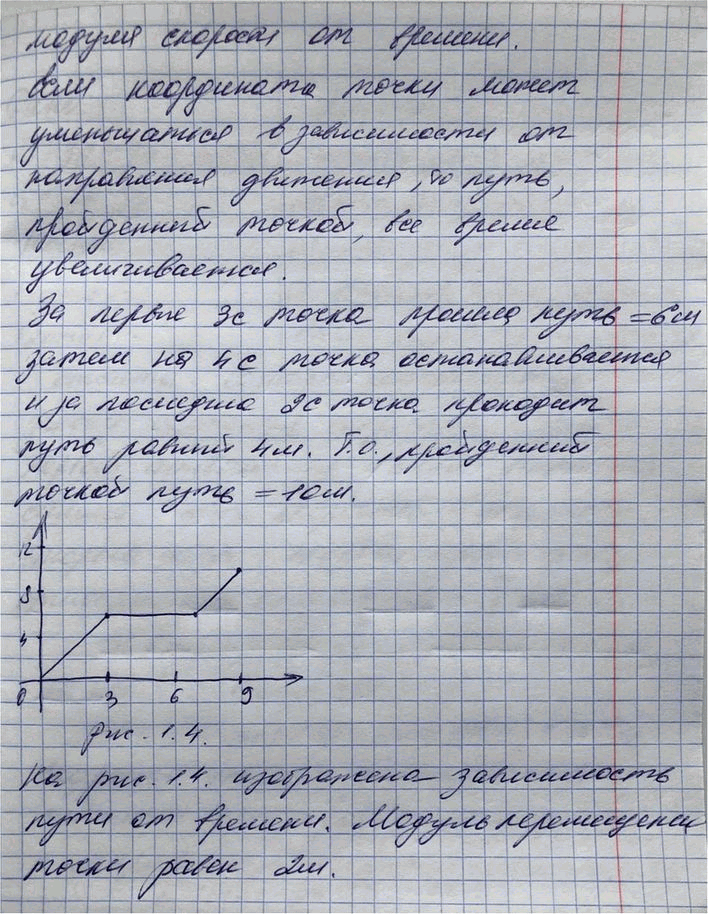 модуля скорости от времени.
Если координата точки может
уменьшаться в зависимости от
направления движения, то путь,
пройденный точкой, все время
увеличивается.
За первые 3с точка прошла путь = 6м
затем на 4с точка останавливается
и за последние 2с точка проходит
путь равный 4м. Т.о., пройденный
точкой путь = 10м.
12
8
4
0 3 6 9
рис. 1.4.
На рис. 1.4. изображена зависимость
пути от времени. Модуль перемещения
точки равен 2м.